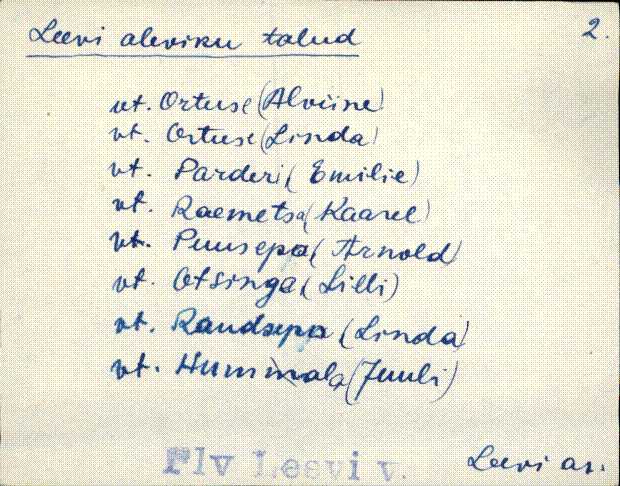 Leevi aleviku talud 2.
vt. Ortuse (Alviine)
vt. Ortuse (Linda)
vt. Parderi (Emilie)
vt. Raemetsa (Kaarel)
vt. Puusepa (Arnold)
vt. Otsinga (Lilli)
vt. Raudsepa (Linda)
vt. Hummala (Juuli)
Plv Leevi v. Leevi as.